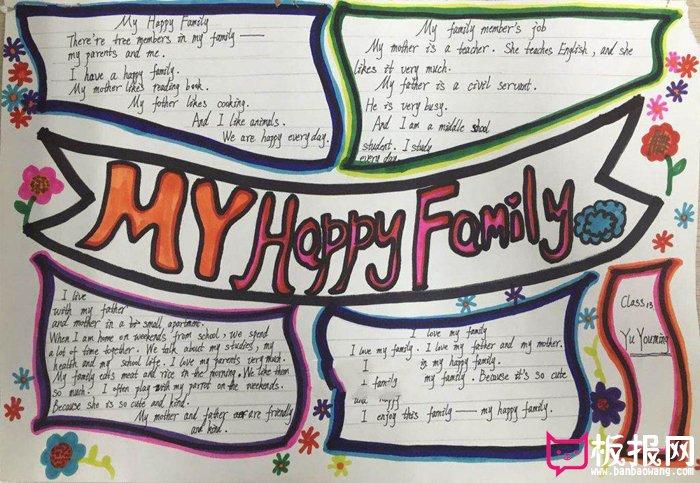 My Happy Family
There're tree members in my family ——
my parents and me.
I have a happy family.
My mother likes reading book.
My fother likes cooking.
And I like animals.
We are happy everyday.
My family member's job
My mother is a teacher. She teaches English, and she
likes it very much.
My father is a civil servant.
He is very busy.
And I am a middle school
student. I study
every day
MY Happy Family
I live
with my father
and mother in a small apartment.
When I am home on weekends from school, we spend
a lot of time together. We talk about my studies, my
health and my school life. I love my parents very much.
My family eats meat and rice in the morning. We like them
so much. I often play with my parrot on the weekends.
Because she is so cute and kind.
My mother and father are friendly
and kind.
I love my family
I love my family. I love my father and my mother.
I in my happy family.
I family my family. Because it's so cute
I enjoy this family —— my happy family.
Class 13
Yu Youming
板报网
www.banbaowang.com